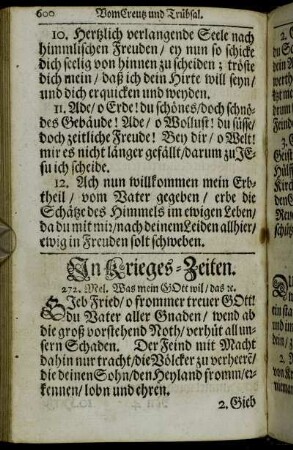 600 Vom Creutz und Trübsal.
10. Hertzlich verlangende Seele nach
himmlischen Freuden/ ey nun so schicke
dich seelig von hinnen zu scheiden; tröste
dich mein/ daß ich dein Hirte will seyn/
und dich erquicken und weyden.
11. Ade/ o Erde! du schönes/ doch schnö-
des Gebäude! Ade/ o Wollust! du süsse/
doch zeitliche Freude! Bey dir/ o Welt!
mir es nicht länger gefällt/ darum zu JE-
su ich scheide.
12. Ach nun willkommen mein Erb-
theil/ vom Vater gegeben/ erbe die
Schätze des Himmels im ewigen Leben/
da du mit mir/ nach deinem Leiden allhier/
ewig in Freuden solt schweben.
In Krieges-Zeiten.
272. Mel. Was mein GOtt will/ das ꝛc.
GJeb Fried/ o frommer treuer GOtt!
du Vater aller Gnaden/ wend ab
die groß vorstehend Noth/ verhüt all un-
sern Schaden. Der Feind mit Macht
dahin nur tracht/ die Völcker zu verheern/
die deinen Sohn/ den Heyland fromm/ er-
kennen/ lobn und ehren.
2. Gieb